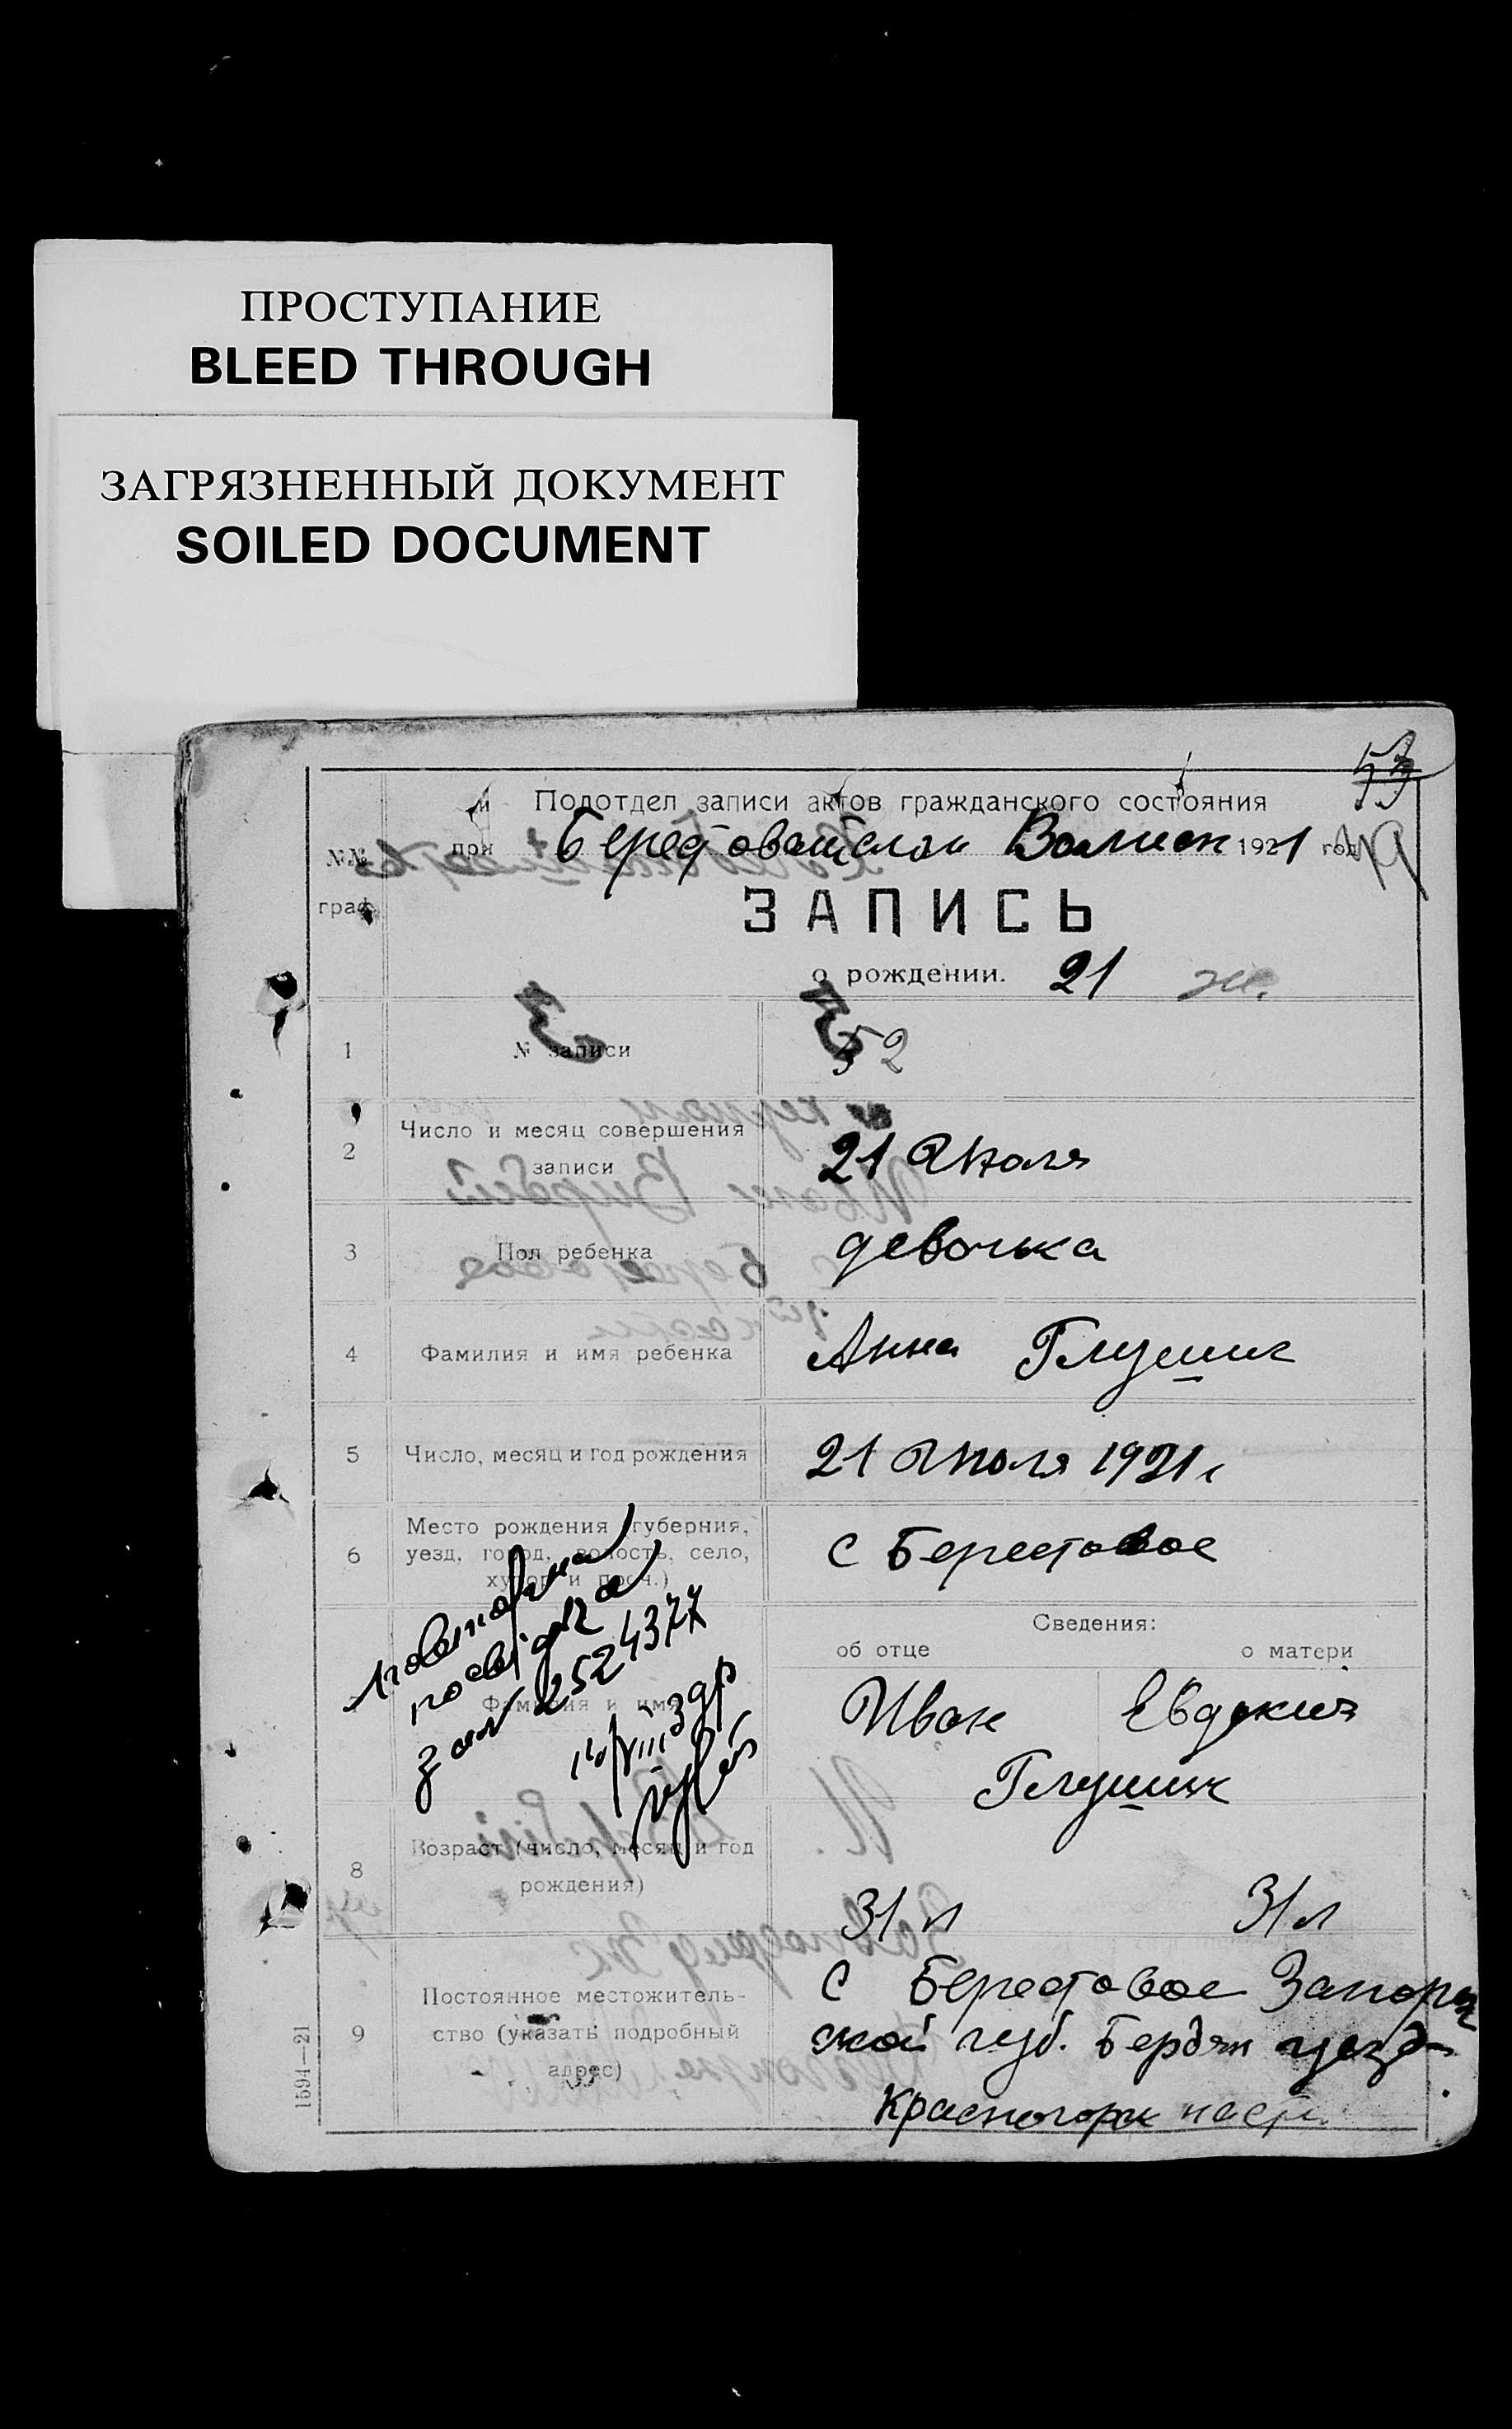 ПРОСТУПАНИЕ
BLEED THROUGH
ЗАГРЯЗНЕННЫЙ ДОКУМЕНТ
SOILED DOCUMENT
Подотдел записи актов гражданского состояния
при Волиск 1921 год
№№
граф.
ЗАПИСЬ
о рождении. 21 ж.
1 № записи 52
2 Число и месяц совершения
записи 21 Июля
3 Пол ребенка девочка
4 Фамилия и имя ребенка Анна Глушик
5 Число, месяц и год рождения 21 Июля 1921 г
Место рождения (губерния,
6 уезд, город, волость, село, с Берестовое
хутор и проч.)
Сведения:
об отце о матери
Фамилия и имя Иван Евдокия
Глушик
8 Возраст (число, месяц и год
рождения) 31 л 31 л
9 Постоянное местожитель-
ство (указать подробный
адрес)
с Берестовое Запорож
ской губ. Бердян уезд
повторна
посвідка
за № 2524377
1594—21